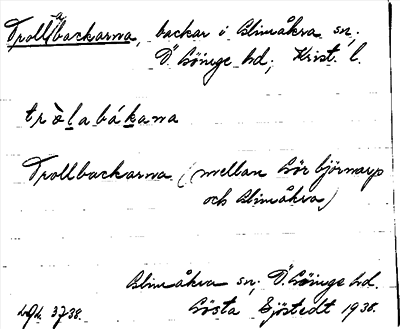 Trollabackarna, backar i Glimåkra sn;
Ö Göinge hd; Krist. l.
tròlabákana
Trollbackarna (mellan Hörbjörnarp
och Glimåkra)
Glimåkra sn; Ö. Göinge hd.
Gösta Sjöstedt 1938.
3738.